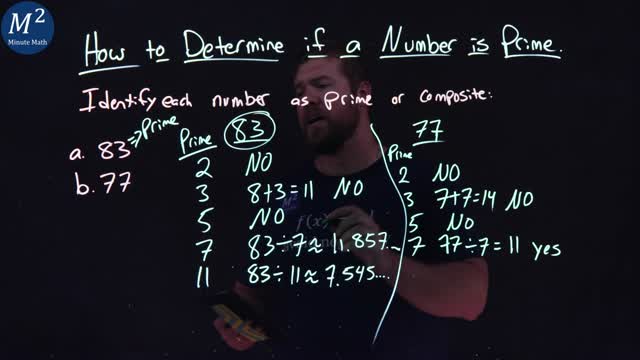 M²
Minute Math
How to Determine if a Number is Prime.
Identify each number as prime or composite:
a. 83 => Prime
b. 77
Prime 83
2 NO
3 8+3=11 NO
5 NO
7 83÷7≈11.857...
11 83÷11≈7.545....
77
Prime
2 NO
3 7+7=14 NO
5 NO
7 77÷7=11 yes
M²
f(x)